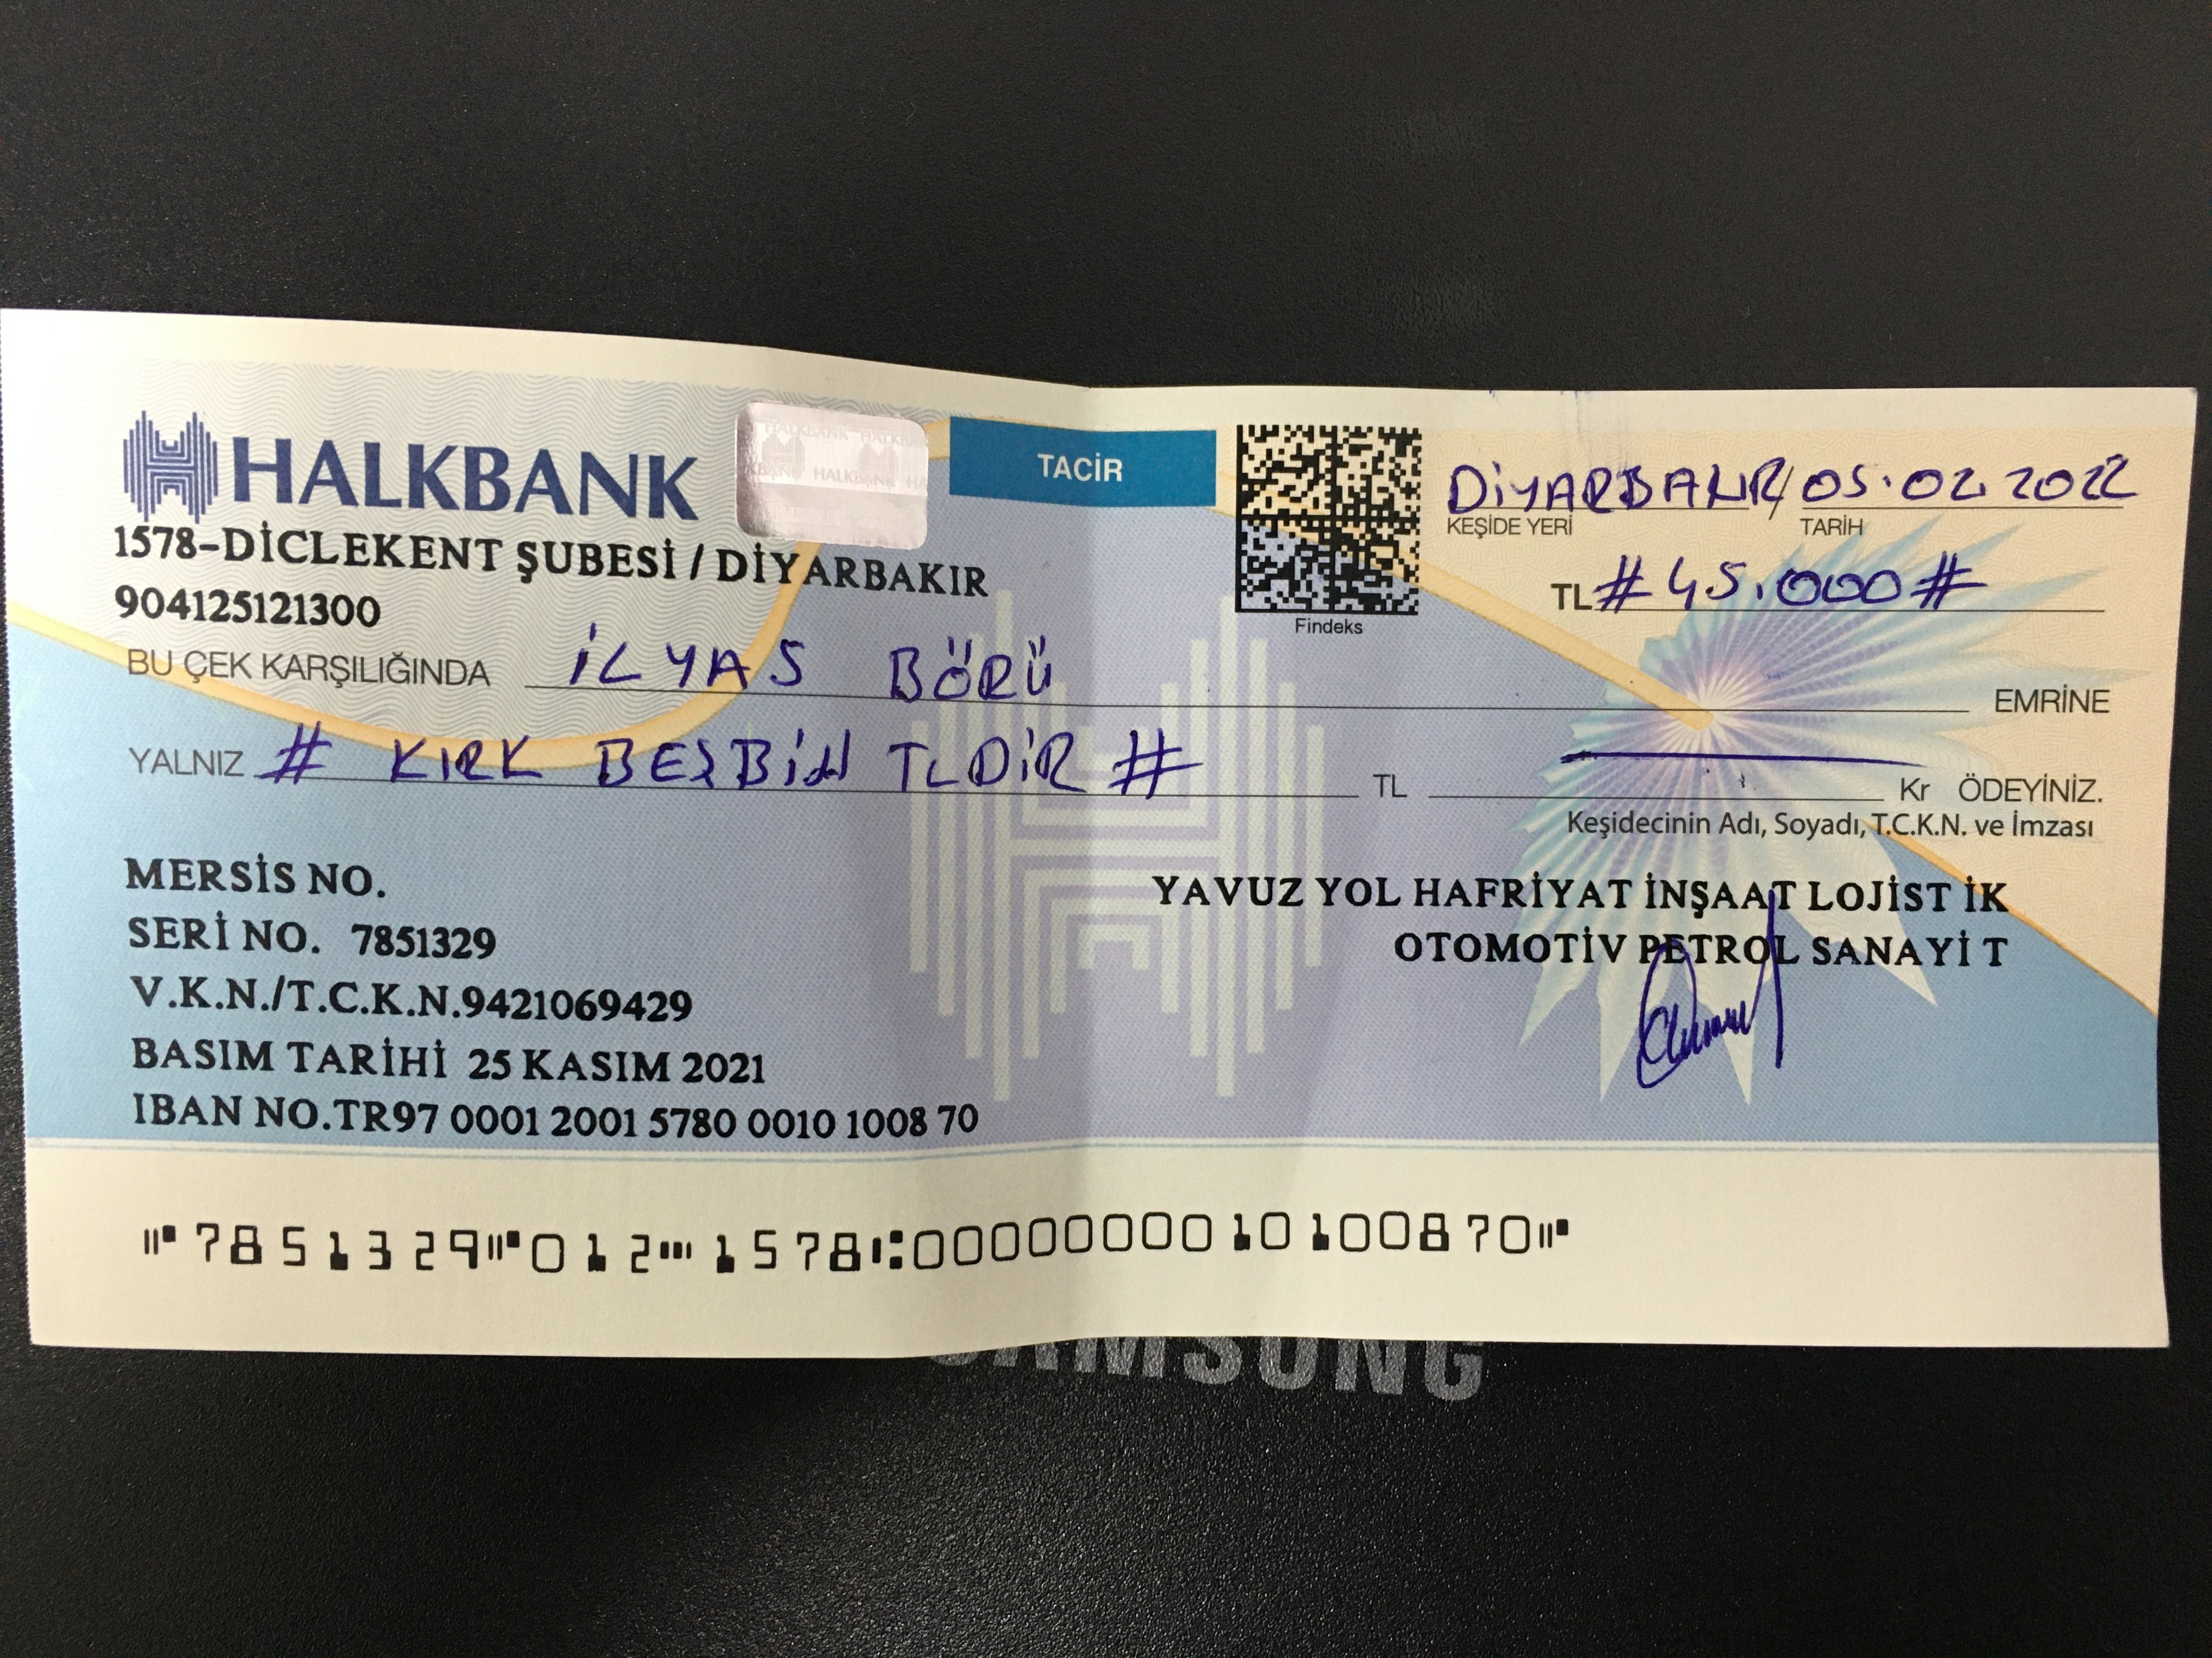 HALKBANK
TACİR
1578-DİCLEKENT ŞUBESİ / DİYARBAKIR
904125121300
Findeks
DİYARBAKIR / 05.02.2022
KEŞİDE YERİ TARİH
TL # 45.000 #
BU ÇEK KARŞILIĞINDA İLYAS BÖRÜ EMRİNE
YALNIZ # KIRK BEŞBİN TLDİR # TL Kr ÖDEYİNİZ.
Keşidecinin Adı, Soyadı, T.C.K.N. ve İmzası
MERSİS NO.
SERİ NO. 7851329
V.K.N./T.C.K.N.9421069429
BASIM TARİHİ 25 KASIM 2021
IBAN NO.TR97 0001 2001 5780 0010 1008 70
YAVUZ YOL HAFRİYAT İNŞAAT LOJİST İK
OTOMOTİV PETROL SANAYİ T
⑈7851329⑈012⑉1578⑆0000000010100870⑈
SAMSUNG